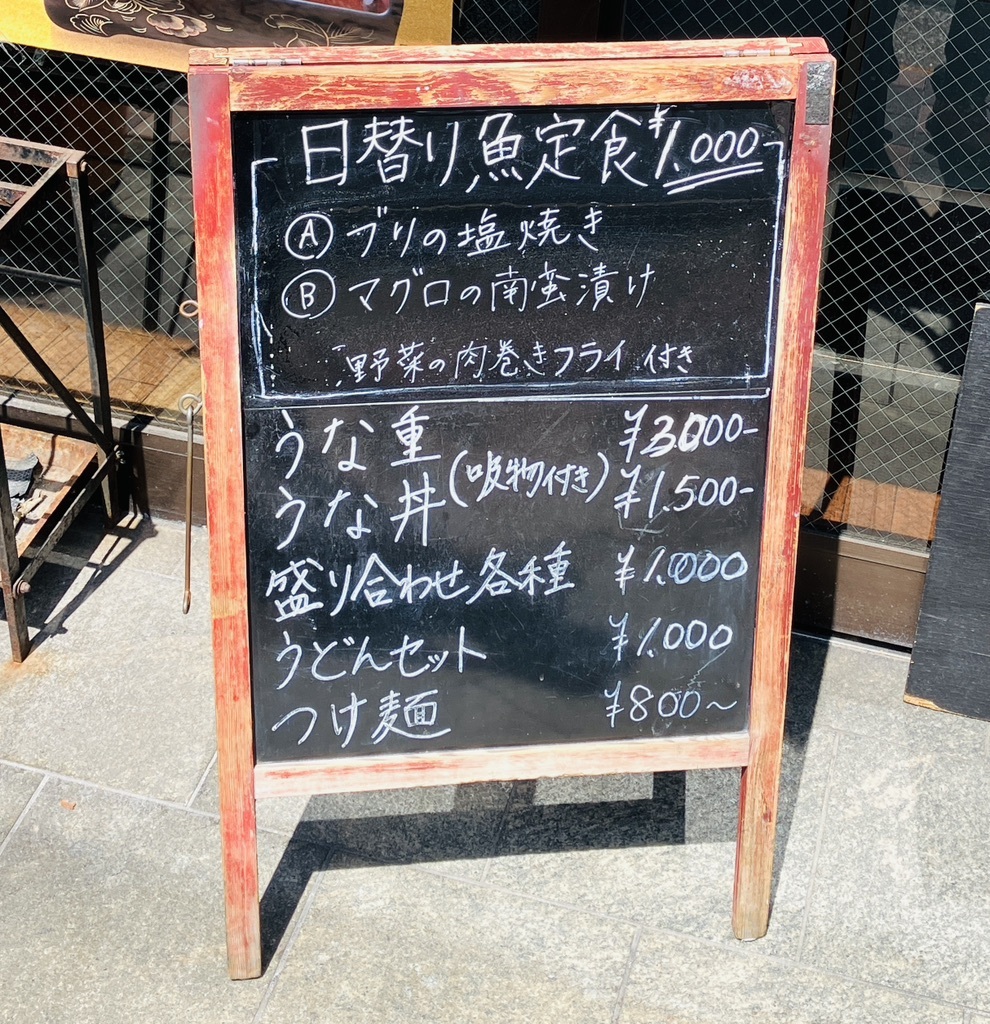 日替り魚定食¥1.000-
Ⓐ ブリの塩焼き
Ⓑ マグロの南蛮漬け
野菜の肉巻きフライ 付き
うな重 ¥3.000-
(吸物付き)
うな丼 ¥1.500-
盛り合わせ各種 ¥1.000
うどんセット ¥1.000
つけ麺 ¥800〜